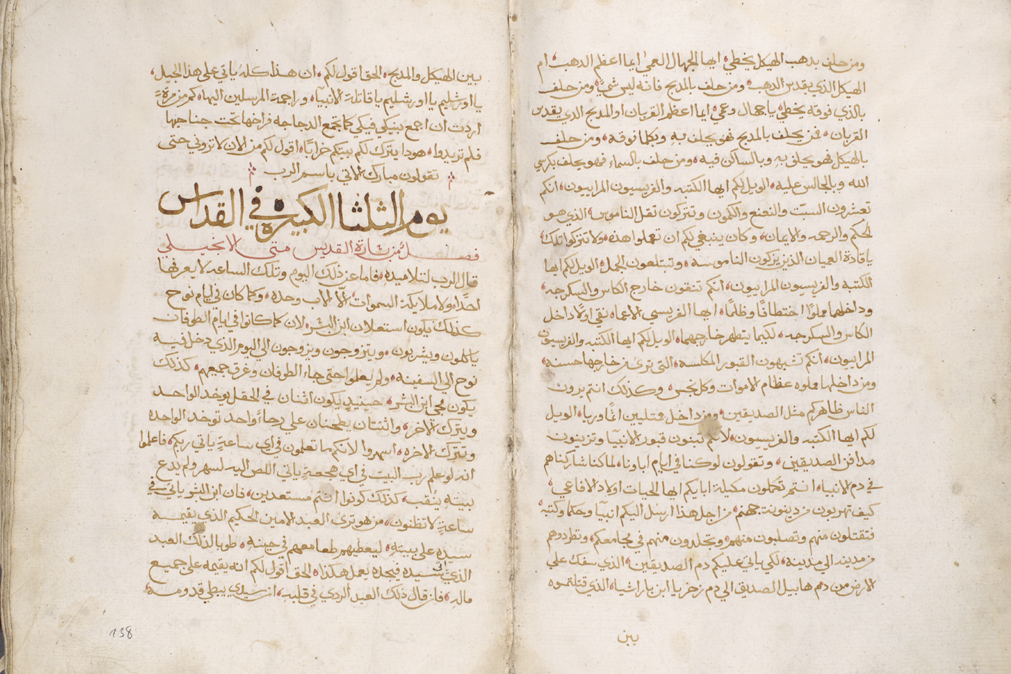 ومن حلف بدهب الهيكل يخطي ايها الجهال العمي ايما اعظم الدهب ام
الهيكل الذي يقدس الدهب ومن حلف بالمدبح فانه ليس شي ومن حلف
بالذي فوقه يخطي يا جهال وعمي ايما اعظم القربان او المدبح الذي يقدس
القربان فمن يحلف بالمدبح فهو يحلف به وبكلما فوقه ومن حلف
بالهيكل فهو يحلف به وبالساكن فيه ومن حلف بالسماء فهو يحلف بكرسي
الله وبالجالس عليه الويل لكم ايها الكتبه والفريسيون المراييون انكم
تعشرون السبت والنعنع والكمون وتتركون تقل الناموس الذي هو
الحكم والرحمه والايمان وكان ينبغي لكم ان تعملوا هذه ولا تتركوا تلك
يا قادة العميان الذين يزكون الناموسه وتبتلعون الجمل الويل لكم ايها
الكتبة والفريسيون المراييون انكم تنقون خارج الكاس والسكرجه
وداخلهما مملوا اختطافا وظلما ايها الفريسي الاعما نقي اولا داخل
الكاس والسكرجه لكيما يتطهر خارجهما الويل لكم ايها الكتبه والفريسيون
المراييون انكم تشبهون القبور المكلسه التي تري من خارجها حسنه
ومن داخلها مملوه عظام الاموات وكل نجس وكذلك انتم ترون
الناس ظاهركم مثل الصديقين ومن داخل ممتليين اتما وريا الويل
لكم ايها الكتبه والفريسيون لانكم تبنون قبور الانبيا وتزينون
مدافن الصديقين وتقولون لو كنا في ايام اباونا لما كنا شاركناهم
في دم الانبياء انتم تكملون مكيلة ابايكم ايها الحيات اولاد الافاعي
كيف تهربون من دينونة جهنم من اجل هذا ارسل اليكم انبيا وحكما وكتبه
فتقتلون منهم وتصلبون منهم وتجلدون منهم في مجامعكم وتطردوهم
من مدينه الي مدينه لكي ياتي عليكم دم الصديقين الذي سفك علي
الارض من دم هابيل الصديق الي دم زخريا ابن باراشيا الذي قتلتموه
بين
بين الهيكل والمدبح الحق اقول لكم ان هذا كله ياتي علي هذا الجيل
يا اورشليم يا اورشليم يا قاتلة الانبياء وراجمة المرسلين اليها كم من مرة
اردت ان اجمع بنيكي فيكي كما تجمع الدجاجه فراخها تحت جناحيها
فلم تريدوا هودا يترك لكم بيتكم خرابا اقول لكم من الان لا تروني حتي
تقولون مبارك الاتي باسم الرب
يوم الثلثا الكبيره في القداس
فصل من بشارة القديس متي الانجيلي
قال الرب لتلاميده فاما عن ذلك اليوم وتلك الساعه لا يعرفها
احد ولا ملايكة السموات الا الاب وحده وكما كان في ايام نوح
كذلك يكون استعلان ابن البشر لان كما كانوا في ايام الطوفان
ياكلون ويشربون ويتزوجون ويزوجون الي اليوم الذي دخل فيه
نوح الي السفينة ولم يعلموا حتي جاء الطوفان وغرق جميعهم كذلك
يكون مجي ابن البشر حينيد يكون اثنان في الحقل يوخد الواحد
ويترك الاخر واثنتان يطحنان علي رحا واحد توخد الواحده
وتترك الاخره اسهروا لانكم ما تعلمون في اي ساعة ياتي ربكم فاعلموا
انه لو علم رب البيت في اي هجعة ياتي اللص اليه لسهر ولم يدع
بيته ينقب كذلك كونوا انتم مستعدين فان ابن البشر ياتي في
ساعة لا تظنون من هو تري العبد الامين الحكيم الذي يقيمه
سيده علي بيته ليعطيهم طعامهم في حينه طوبا لذلك العبد
الذي ياتي سيده فيجده يعمل هكذا الحق اقول لكم انه يقيمه علي جميع
ماله فان قال ذلك العبد الردي في قلبه ان سيدي يبطي قدومه
138